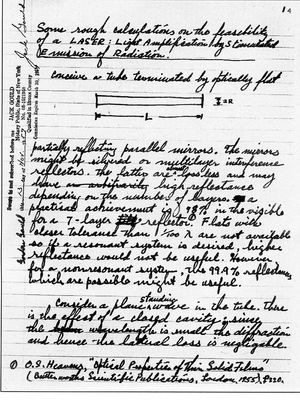 1
Some rough calculations on the feasibility
of a LASER: Light Amplification by Stimulated
Emission of Radiation.
Conceive a tube terminated by optically flat
L
partially reflecting parallel mirrors. The mirrors
might be silvered or multilayer interference
reflectors. The latter are lossless and may
have high reflectance
depending on the number of layers. A
practical achievement is 98% in the visible
for a 7-layer reflector. Flats with
closer tolerance than 1/100 λ are not available
so if a resonant system is desired, higher
reflectance would not be useful. However
for a nonresonant system, the 99.9% reflectances
which are possible might be useful.
Consider a plane standing wave in the tube. There
is the effect of a closed cavity; since
the wavelength is small the diffraction
and hence the lateral loss is negligable.
① O.S. Heavens, "Optical Properties of Thin Solid Films"
(Butterworths Scientific Publications, London, 1955), p220.
JACK GOULD
Notary Public, State of New York
Qualified in Bronx County
Gordon Gould
Jack Gould